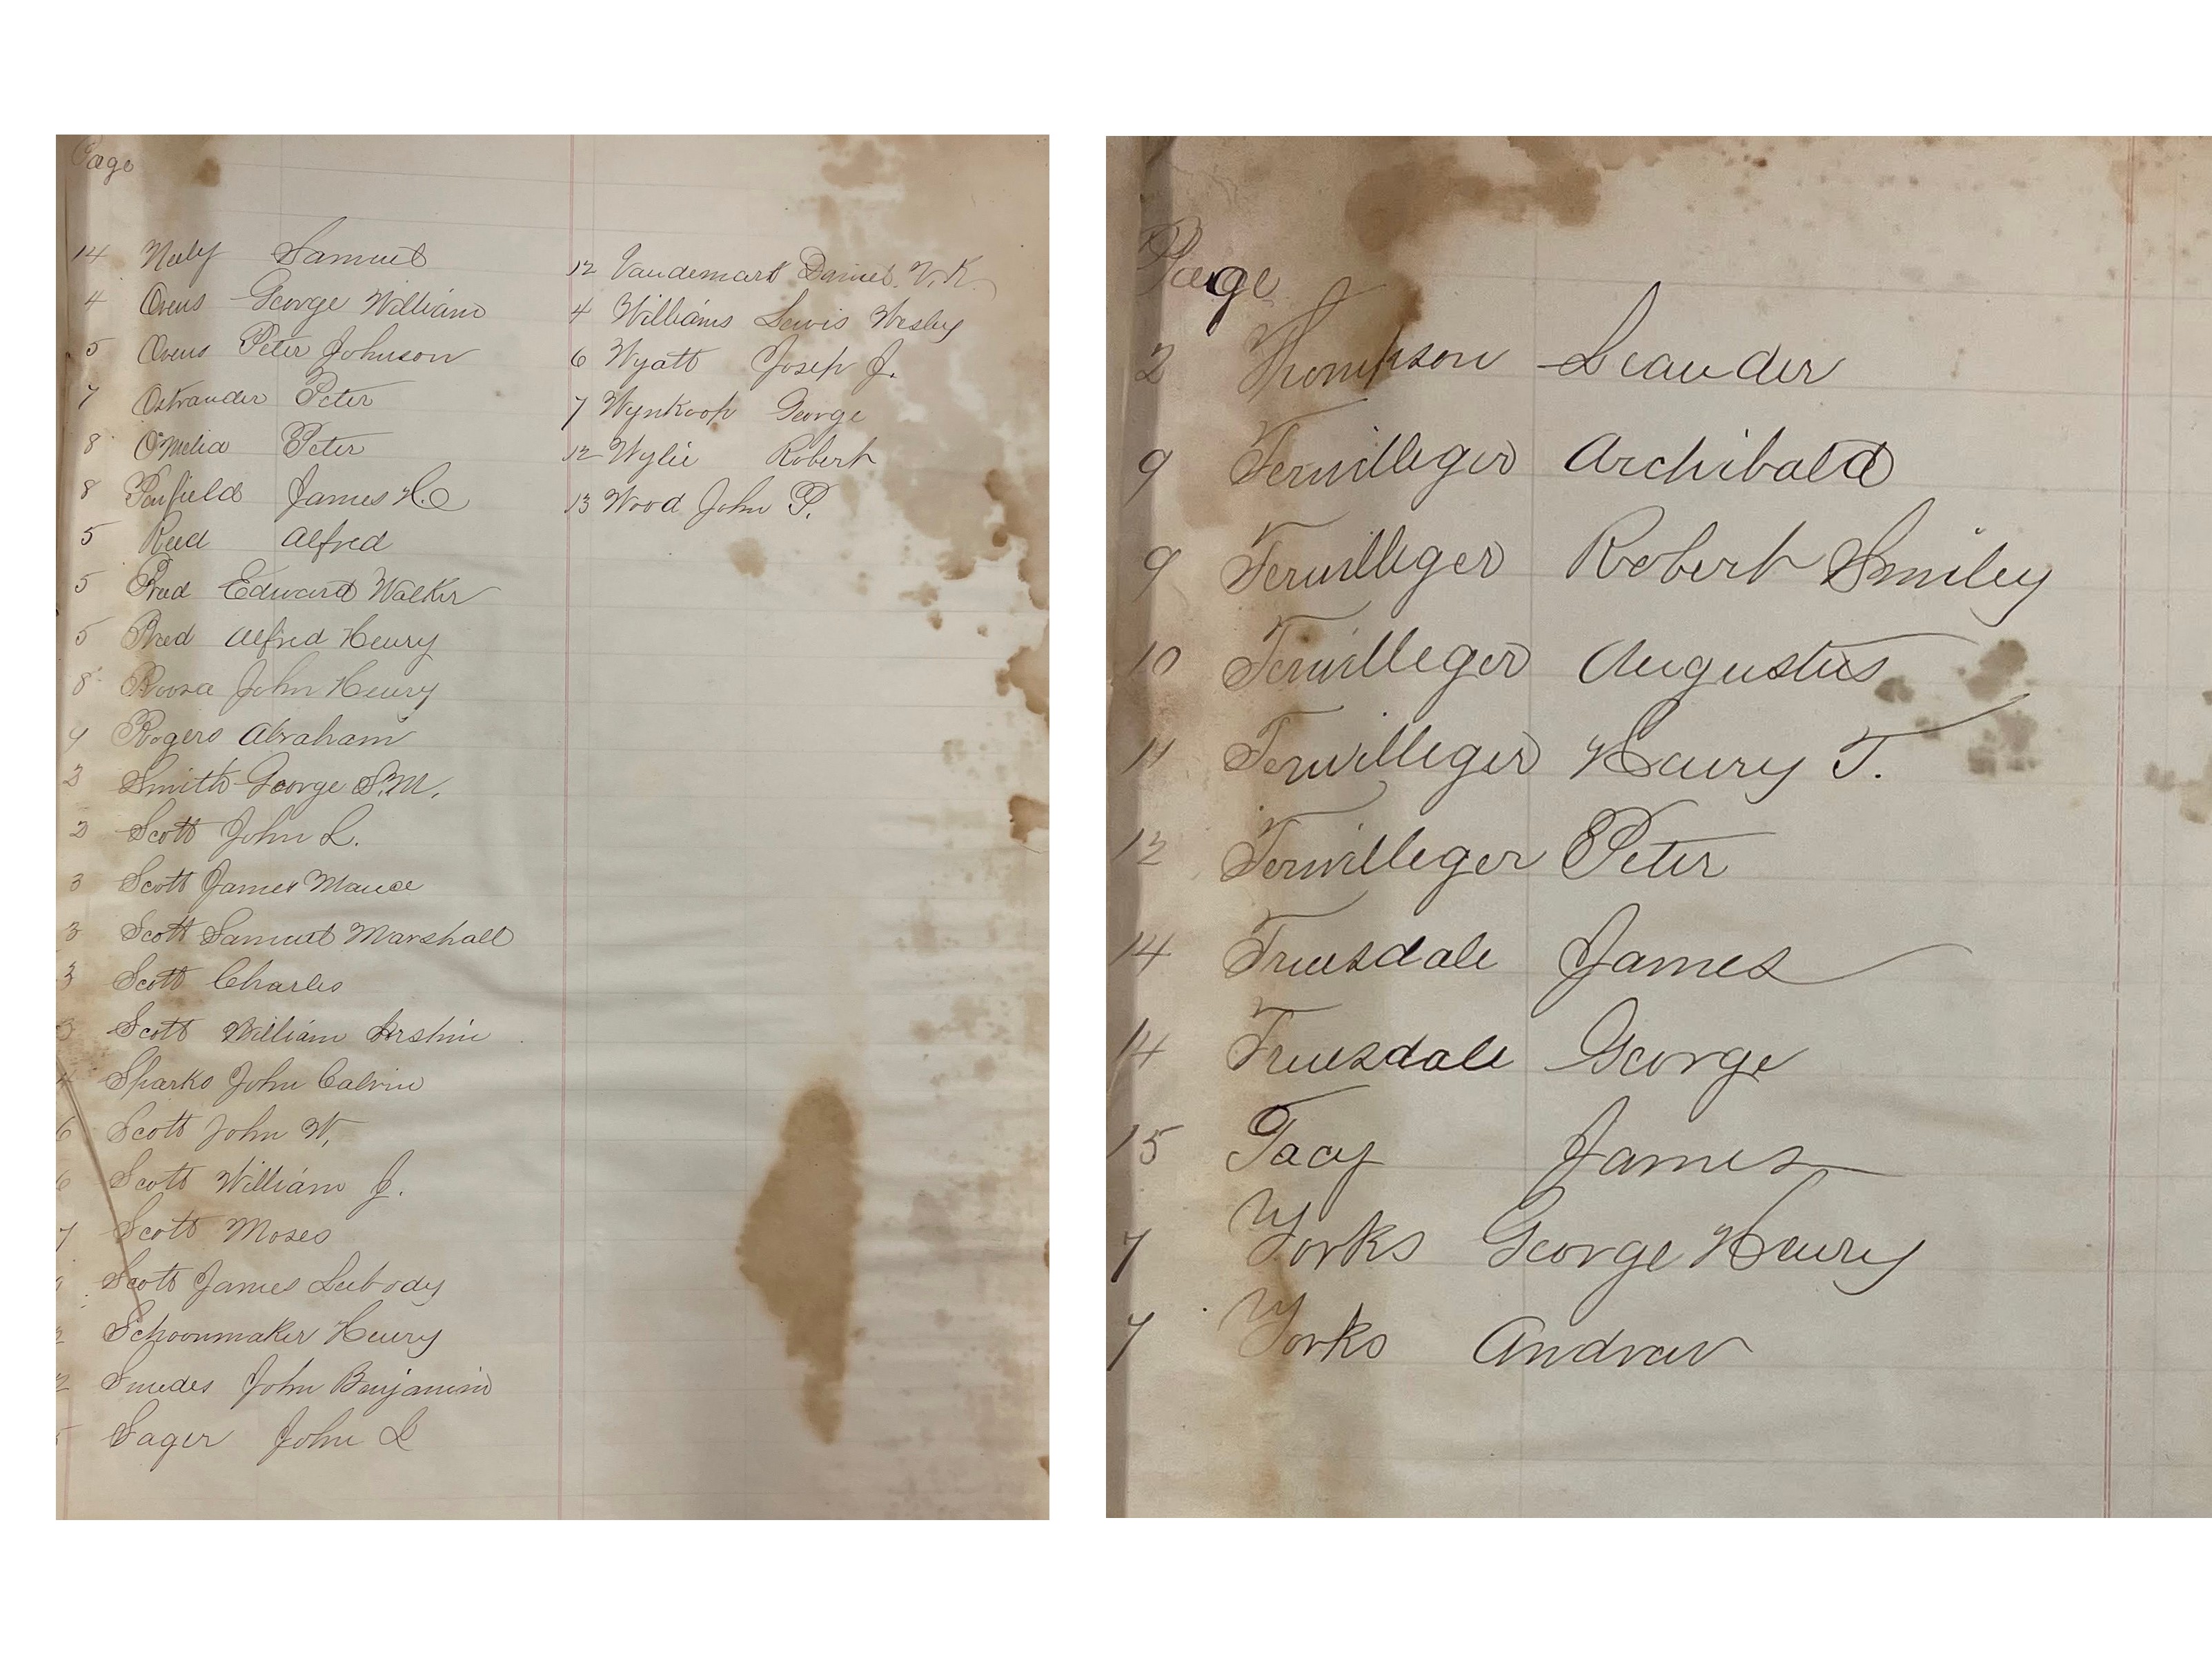 Page
14 Neely Samuel
4 Owens George William
5 Owens Peter Johnson
7 Ostrander Peter
8 O'Melia Peter
8 Penfield James H.
5 Reed Alfred
5 Reed Edward Walker
5 Reed Alfred Henry
8 Roosa John Henry
9 Rogers Abraham
2 Smith George S.M.
2 Scott John L.
3 Scott James Mance
3 Scott Samuel Marshall
3 Scott Charles
3 Scott William Erskin
4 Sparks John Calvin
6 Scott John W.
6 Scott William J.
7 Scott Moses
Scott James Leebody
Schoonmaker Henry
Smedes John Benjamin
Sager John L
12 Vandemark Daniel V.K.
4 Williams Lewis Wesley
6 Wyatt Joseph J.
7 Wynkoop George
12 Wylie Robert
13 Wood John P.
Page
2 Thompson Leander
9 Terwilleger Archibald
9 Terwilleger Robert Smiley
10 Terwilleger Augustus
11 Terwilleger Henry T.
12 Terwilleger Peter
14 Truesdale James
14 Truesdale George
15 Tacy James
7 Yorks George Henry
7 Yorks Andrew